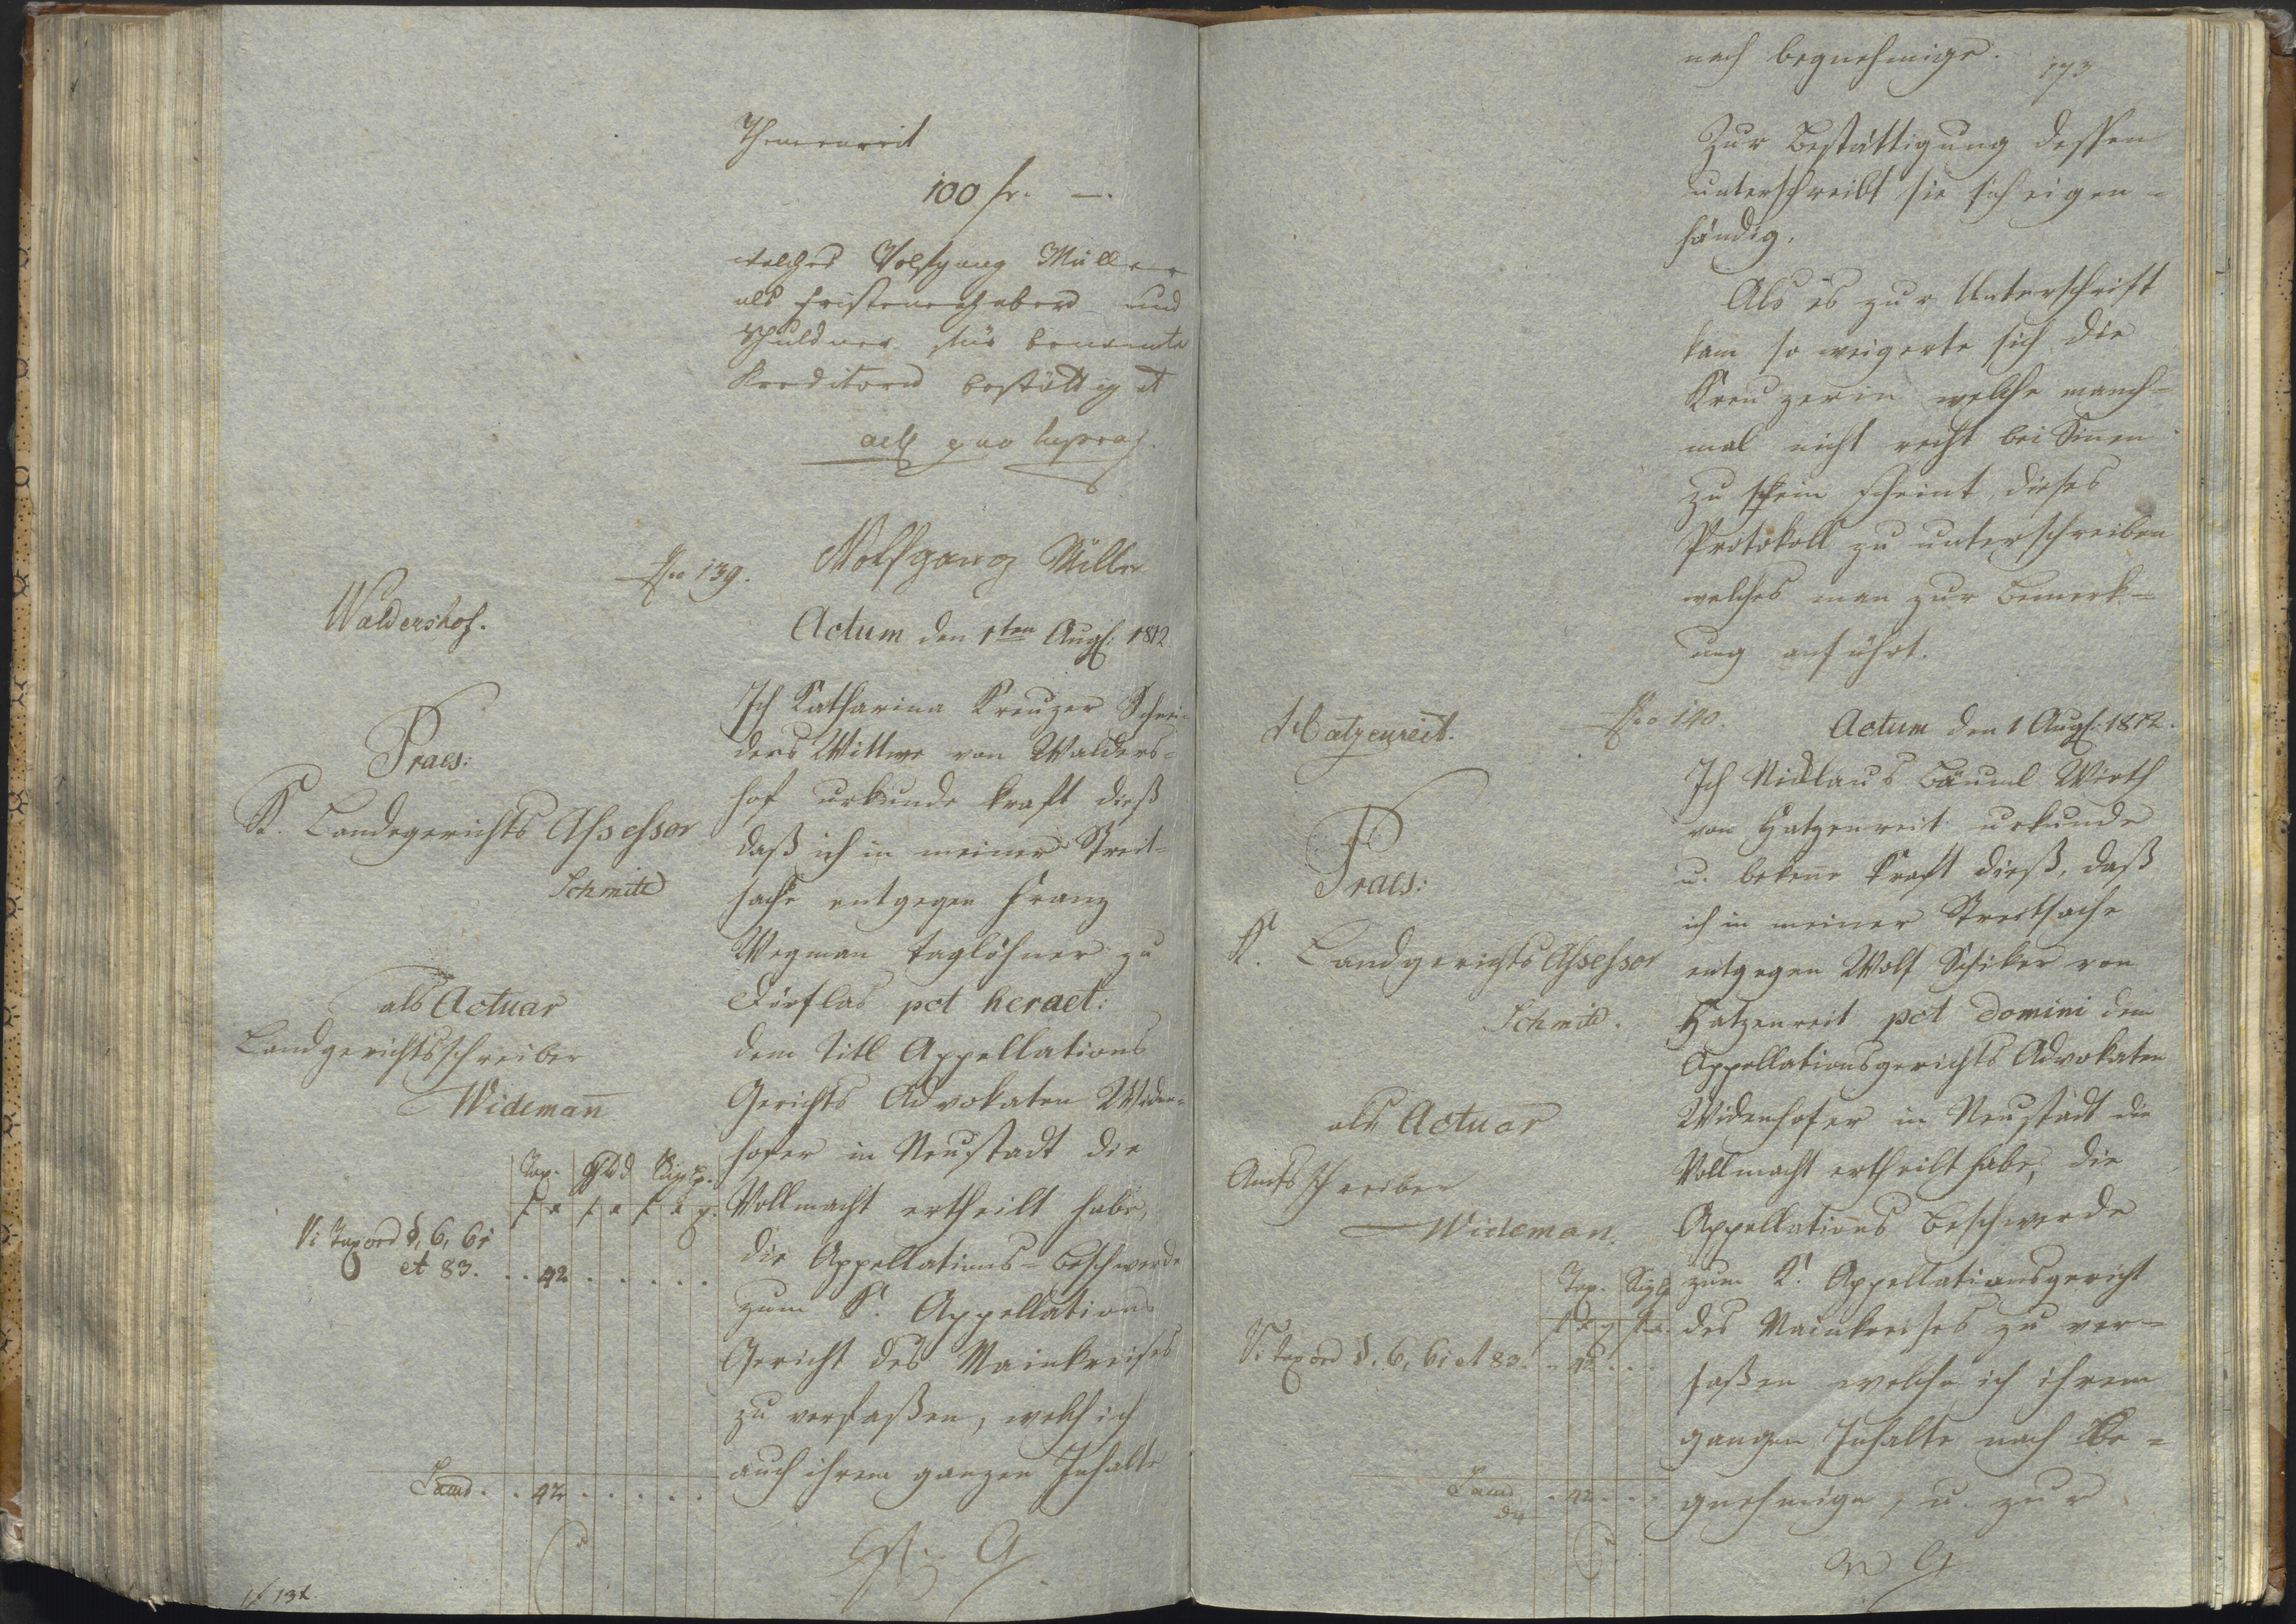 100 fr. —.
welches Wolfgang Müller
als Fristenerheber und
Schuldner für benannte
Kreditorn bestättiget
act quo supra
Wolfgang Miller
Nro 139.
Waldershof.
Actum den 1ten Augs: 1812
Praes:
K. Landgerichts Assessor
Schmid
als Actuar
Landgerichtsschreiber
Widemañ
Ich Katharina Kreuzer Schnei=
ders Wittwe von Walders=
hof urkunde kraft dieß
daß ich in meiner Streit=
sache entgegen Franz
Wegman Taglöhner zu
Dörflas pct heraet:
dem Titl Appellations
Gerichts Advokaten Widen=
hofer in Neustadt die
Vollmacht ertheilt habe,
die Appellations=Beschwerde
zum K. Appellations
Gericht des Mainkreises
zu verfaßen, welch ich
auch ihrem ganzen Inhalte
Tax.
Vi Taxord §. 6, 61
et 83. . . 42 . . . . . .
. . 42 . . . . .
nach begnehmige.
173
Zur Bestättigung dessen
unterschreibt sie sich eigen=
händig.
Als es zur Unterschrift
kam so weigerte sich die
Kreuzerin welche manch=
mal nicht recht bei Sinnen
zu sein scheint, dieses
Protokoll zu unterschreiben
welches man zur Bemerk=
ung anführt.
Hatzenreit.
Nro 140.
Actum den 1 Augs: 1812.
Praes:
K. Landgerichts Assessor
Schmid.
als Actuar
Amtsschreiber
Wideman.
Ich Niklaus Bäuml Wirth
von Hatzenreit urkunde
u. bekeñe kraft dieß, daß
ich in meiner Streitsache
entgegen Wolf Schiker von
Hatzenreit pct Domini dem
Appellationsgerichts Advokaten
Widenhofer in Neustadt die
Vollmacht ertheilt habe, die
Appellations Beschwerde
zum K. Appellationsgericht
des Mainkreises zu ver=
faßen welche ich ihrem
ganzen Inhalte nach be=
gnehmige, u. zur
Tax.
Vi Taxord §. 6, 61 et 83. . . 42 . . .
. 42 . . .